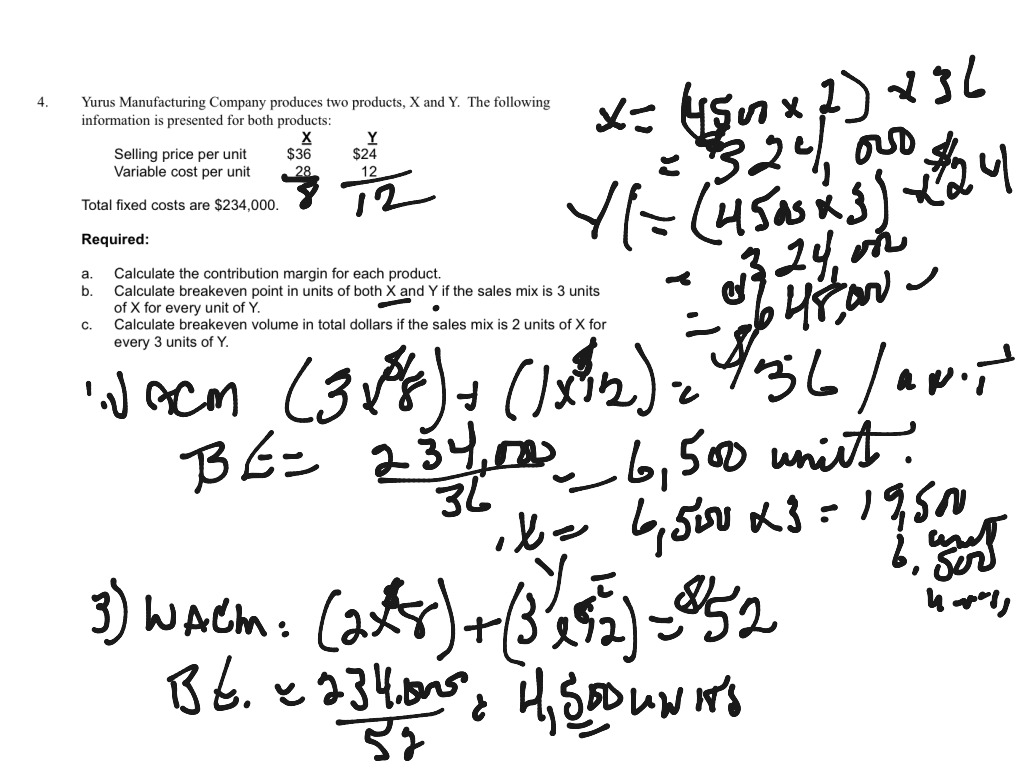 4. Yurus Manufacturing Company produces two products, X and Y. The following
information is presented for both products:
X Y
Selling price per unit $36 $24
Variable cost per unit 28 12
8 12
Total fixed costs are $234,000.
Required:
a. Calculate the contribution margin for each product.
b. Calculate breakeven point in units of both X and Y if the sales mix is 3 units
of X for every unit of Y.
c. Calculate breakeven volume in total dollars if the sales mix is 2 units of X for
every 3 units of Y.
X = (4500 x 2) x 36
= $324,000
Y = (4500 x 3) x $24
= 324,000
= $648,000
(3 x $8) + (1 x $12) = $36 / unit
BE = 234,000 / 36 = 6,500 units.
X = 6,500 x 3 = 19,500
units
Y = 6,500
units
3) WACM: (2 x $8) + (3 x $12) = $52
BE. = 234,000 / 52 = 4,500 units